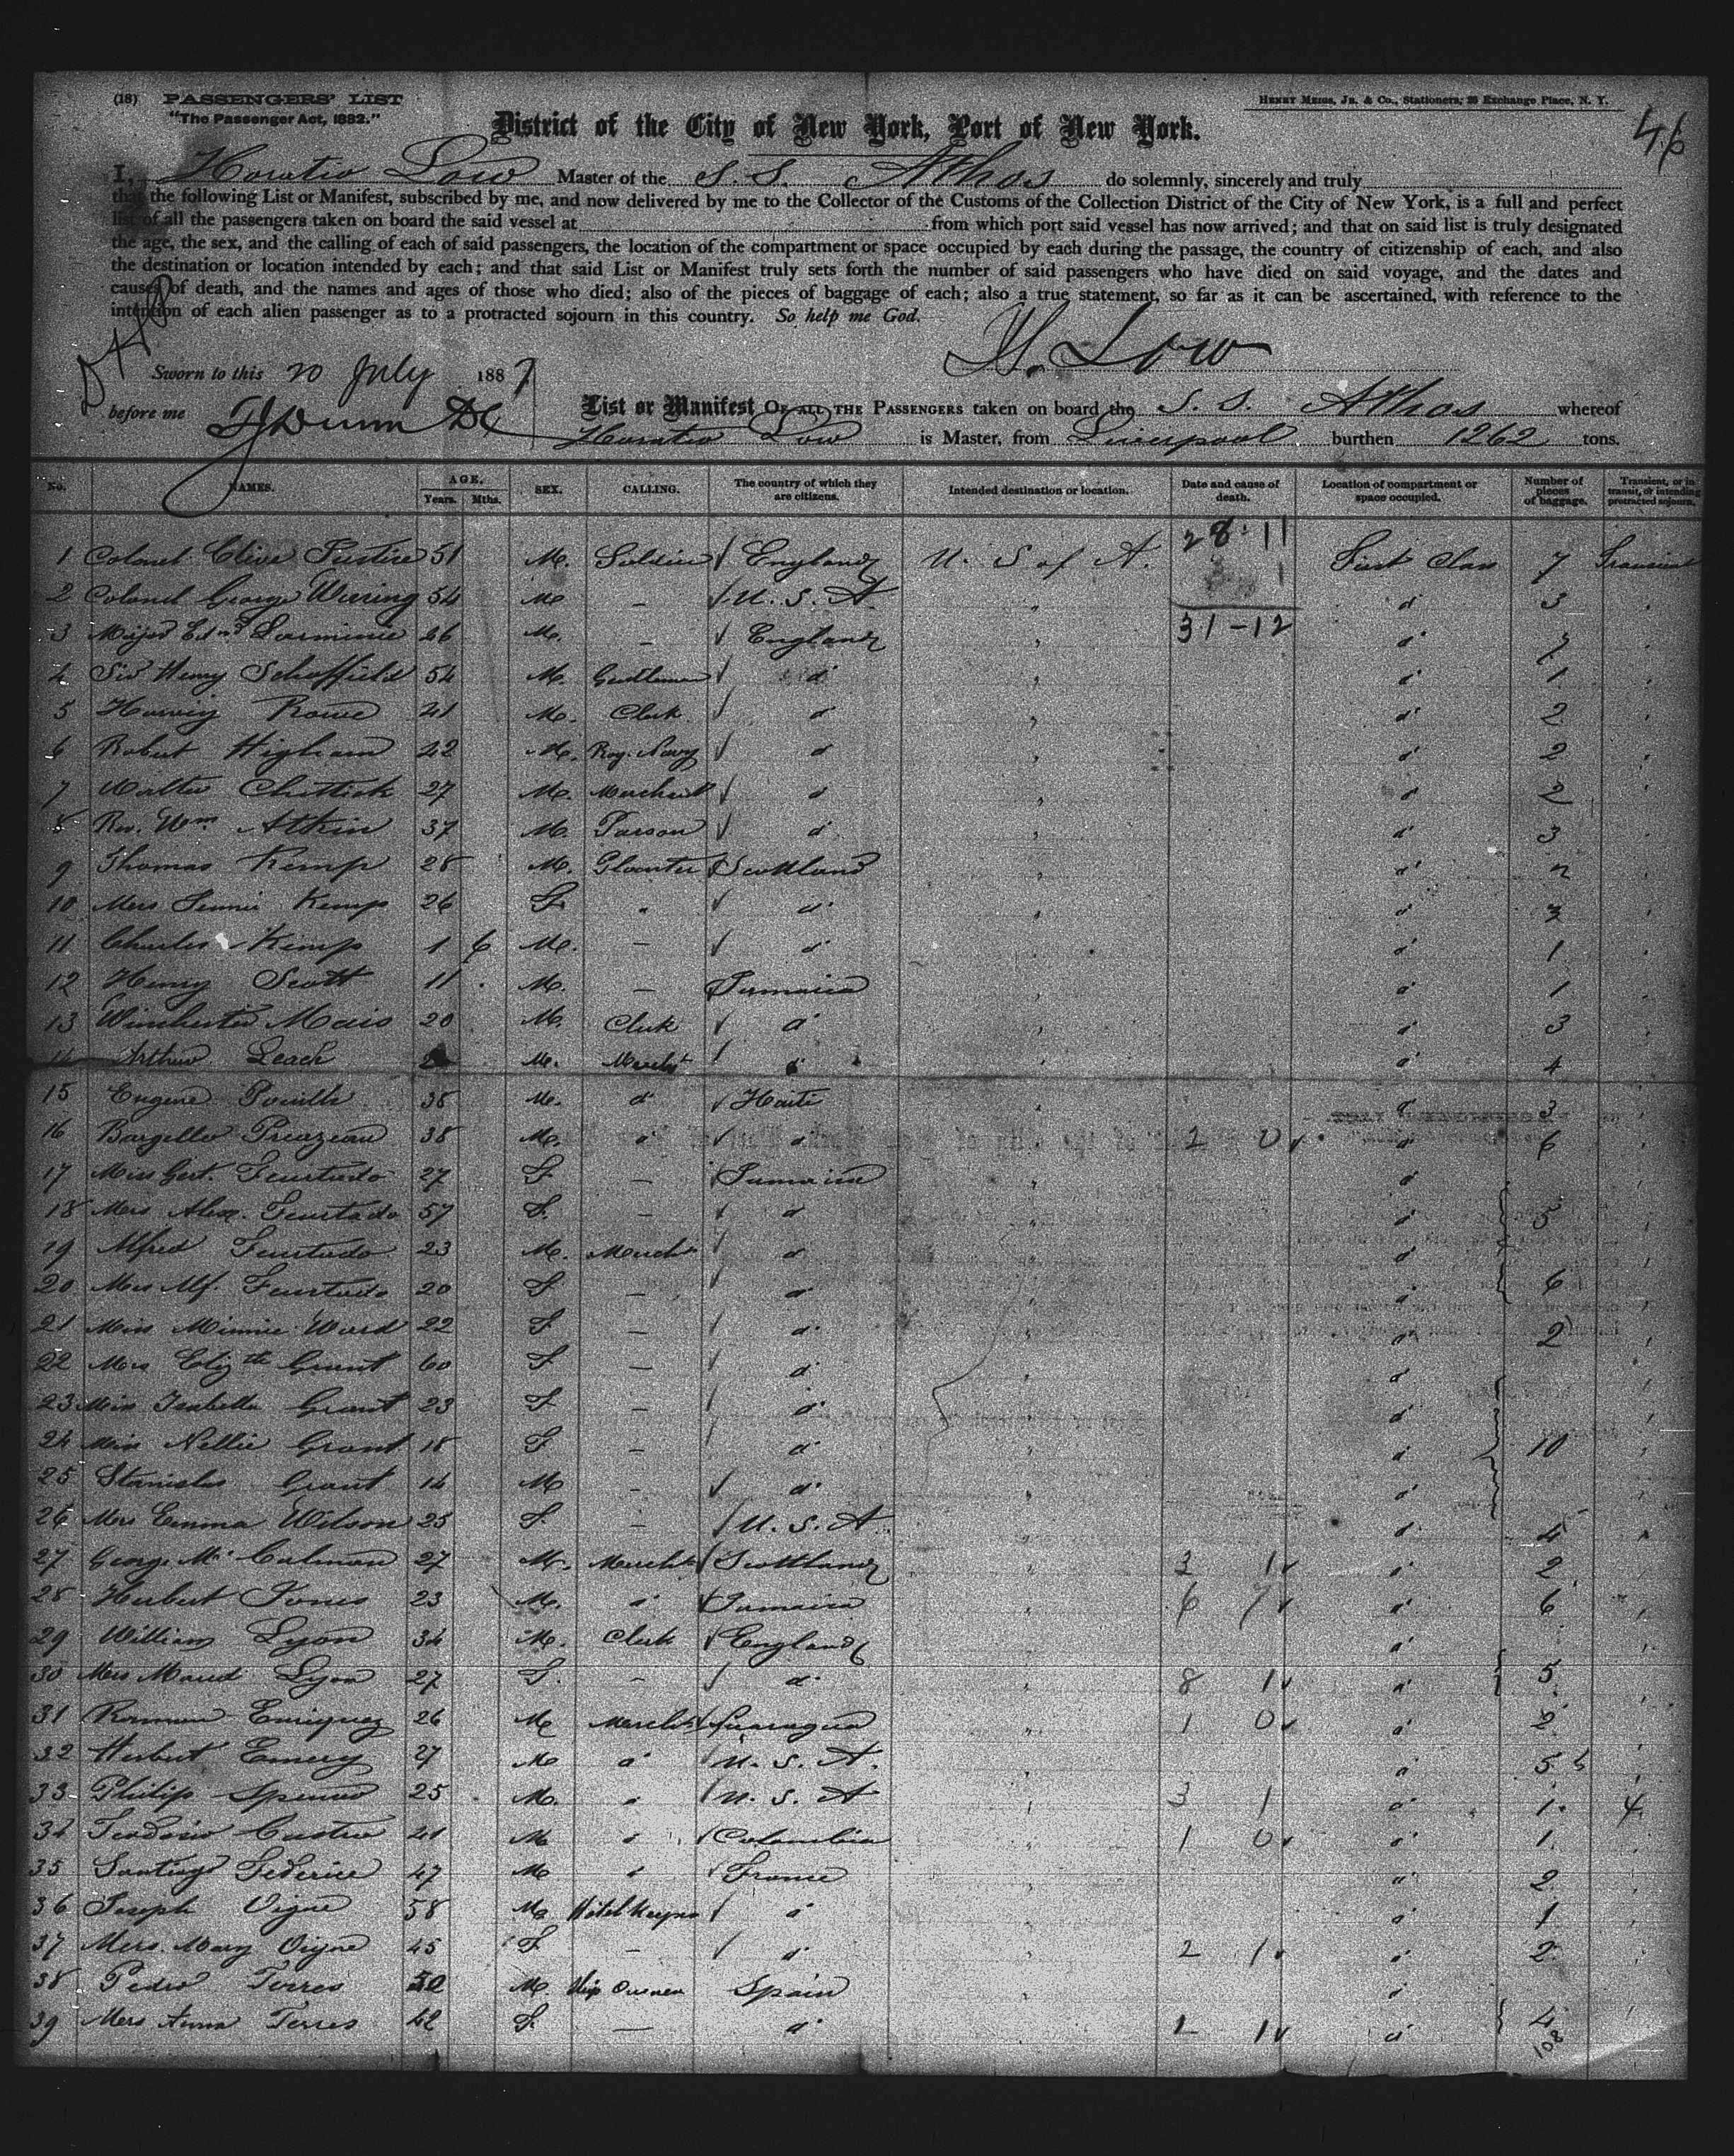 (18) PASSENGERS' LIST
"The Passenger Act, 1882."
HENRY MEIGS, JR. & CO., Stationers, 26 Exchange Place, N. Y.
46
District of the City of New York, Port of New York.
I, Horatio Low Master of the S. S. Athos do solemnly, sincerely and truly
that the following List or Manifest, subscribed by me, and now delivered by me to the Collector of the Customs of the Collection District of the City of New York, is a full and perfect
list of all the passengers taken on board the said vessel at from which port said vessel has now arrived; and that on said list is truly designated
the age, the sex, and the calling of each of said passengers, the location of the compartment or space occupied by each during the passage, the country of citizenship of each, and also
the destination or location intended by each; and that said List or Manifest truly sets forth the number of said passengers who have died on said voyage, and the dates and
causes of death, and the names and ages of those who died; also of the pieces of baggage of each; also a true statement, so far as it can be ascertained, with reference to the
intention of each alien passenger as to a protracted sojourn in this country. So help me God.
H. Low
Sworn to this 20 July 1887
before me
List or Manifest OF ALL THE PASSENGERS taken on board the S. S. Athos whereof
Horatio Low is Master, from Liverpool burthen 1262 tons.
No. NAMES. AGE. Years. Mths. SEX. CALLING. The country of which they are citizens. Intended destination or location. Date and cause of death. Location of compartment or space occupied. Number of pieces of baggage. Transient, or in transit, or intending protracted sojourn.
28-11
1 Colonel Clive Justice 51 M. Soldier England U. S. of A. First Class 7 Transient
2 Colonel George Wiering 54 M. — U. S. A " d 3
31-12
3 Major Edwd 46 M. — England " d 7
4 Sir Henry Schoffield 54 M. Gentleman d d 1
5 Rowe 41 M. Clerk d " d 2
6 Robert Higham 42 M. Roy. Navy d " d 2
7 Walter 27 M. Merchant d " d 2
8 Rev. Wm Atkin 37 M. Parson d " d 3
9 Thomas Kemp 28 M. Scottland d 2
10 Mrs Jennie Kemp 26 F. " d " d 3
11 Charles Kemp 1 6 M. — d d 1
12 Henry Scott 11 M. — Jamaica " d 1
13 Winchester Mais 20 M. Clerk d " d 3
14 Arthur Leach M. Mercht d " d 4
15 Eugene 38 M. d Haiti " d 3
16 38 M. d d 2 0 d 6
17 Miss Gert. Feurtado 27 F — Jamaica " d
18 Mrs Alex. Feurtado 57 F. — d d 5
19 Alfred Feurtado 23 M. Mercht d d
20 Mrs Alf. Feurtado 20 F — d d 6
21 Miss Minnie Ward 22 F — d d 2
22 Mrs Elizth Grant 60 F — d d
23 Miss Isabella Grant 23 F — d d
24 Miss Nellie Grant 18 F — d d 10
25 Stanislas Grant 14 M — d d
26 Mrs Emma Wilson 25 F. — U. S. A. d 4
27 George Mc Calman 27 M. Mercht Scottland 3 1 d 2
28 Herbert Jones 23 M. d Jamaica 6 1 d 6
29 William Lyon 34 M. Clerk England d
30 Mrs Maud Lyon 27 F. — d 8 1 d 5
31 Ramon Enriquez 26 M Mercht 1 0 d 2
32 Herbert Emery 27 M d U. S. A. d 5
33 Philip 25 M. d U. S. A 3 1 d 1 4
34 Teodosio Castro 41 M d Columbia 1 0 d 1
35 Santiago Federice 47 M d France d 2
36 Joseph Vigne 58 M Hotel Keeper d d 1
37 Mrs. Mary Vigne 45 F — d 2 1 d 2
38 Pedro Torres 50 M. Ship Owner Spain d
39 Mrs Anna Torres 42 F. — d 1 1 d 4
108